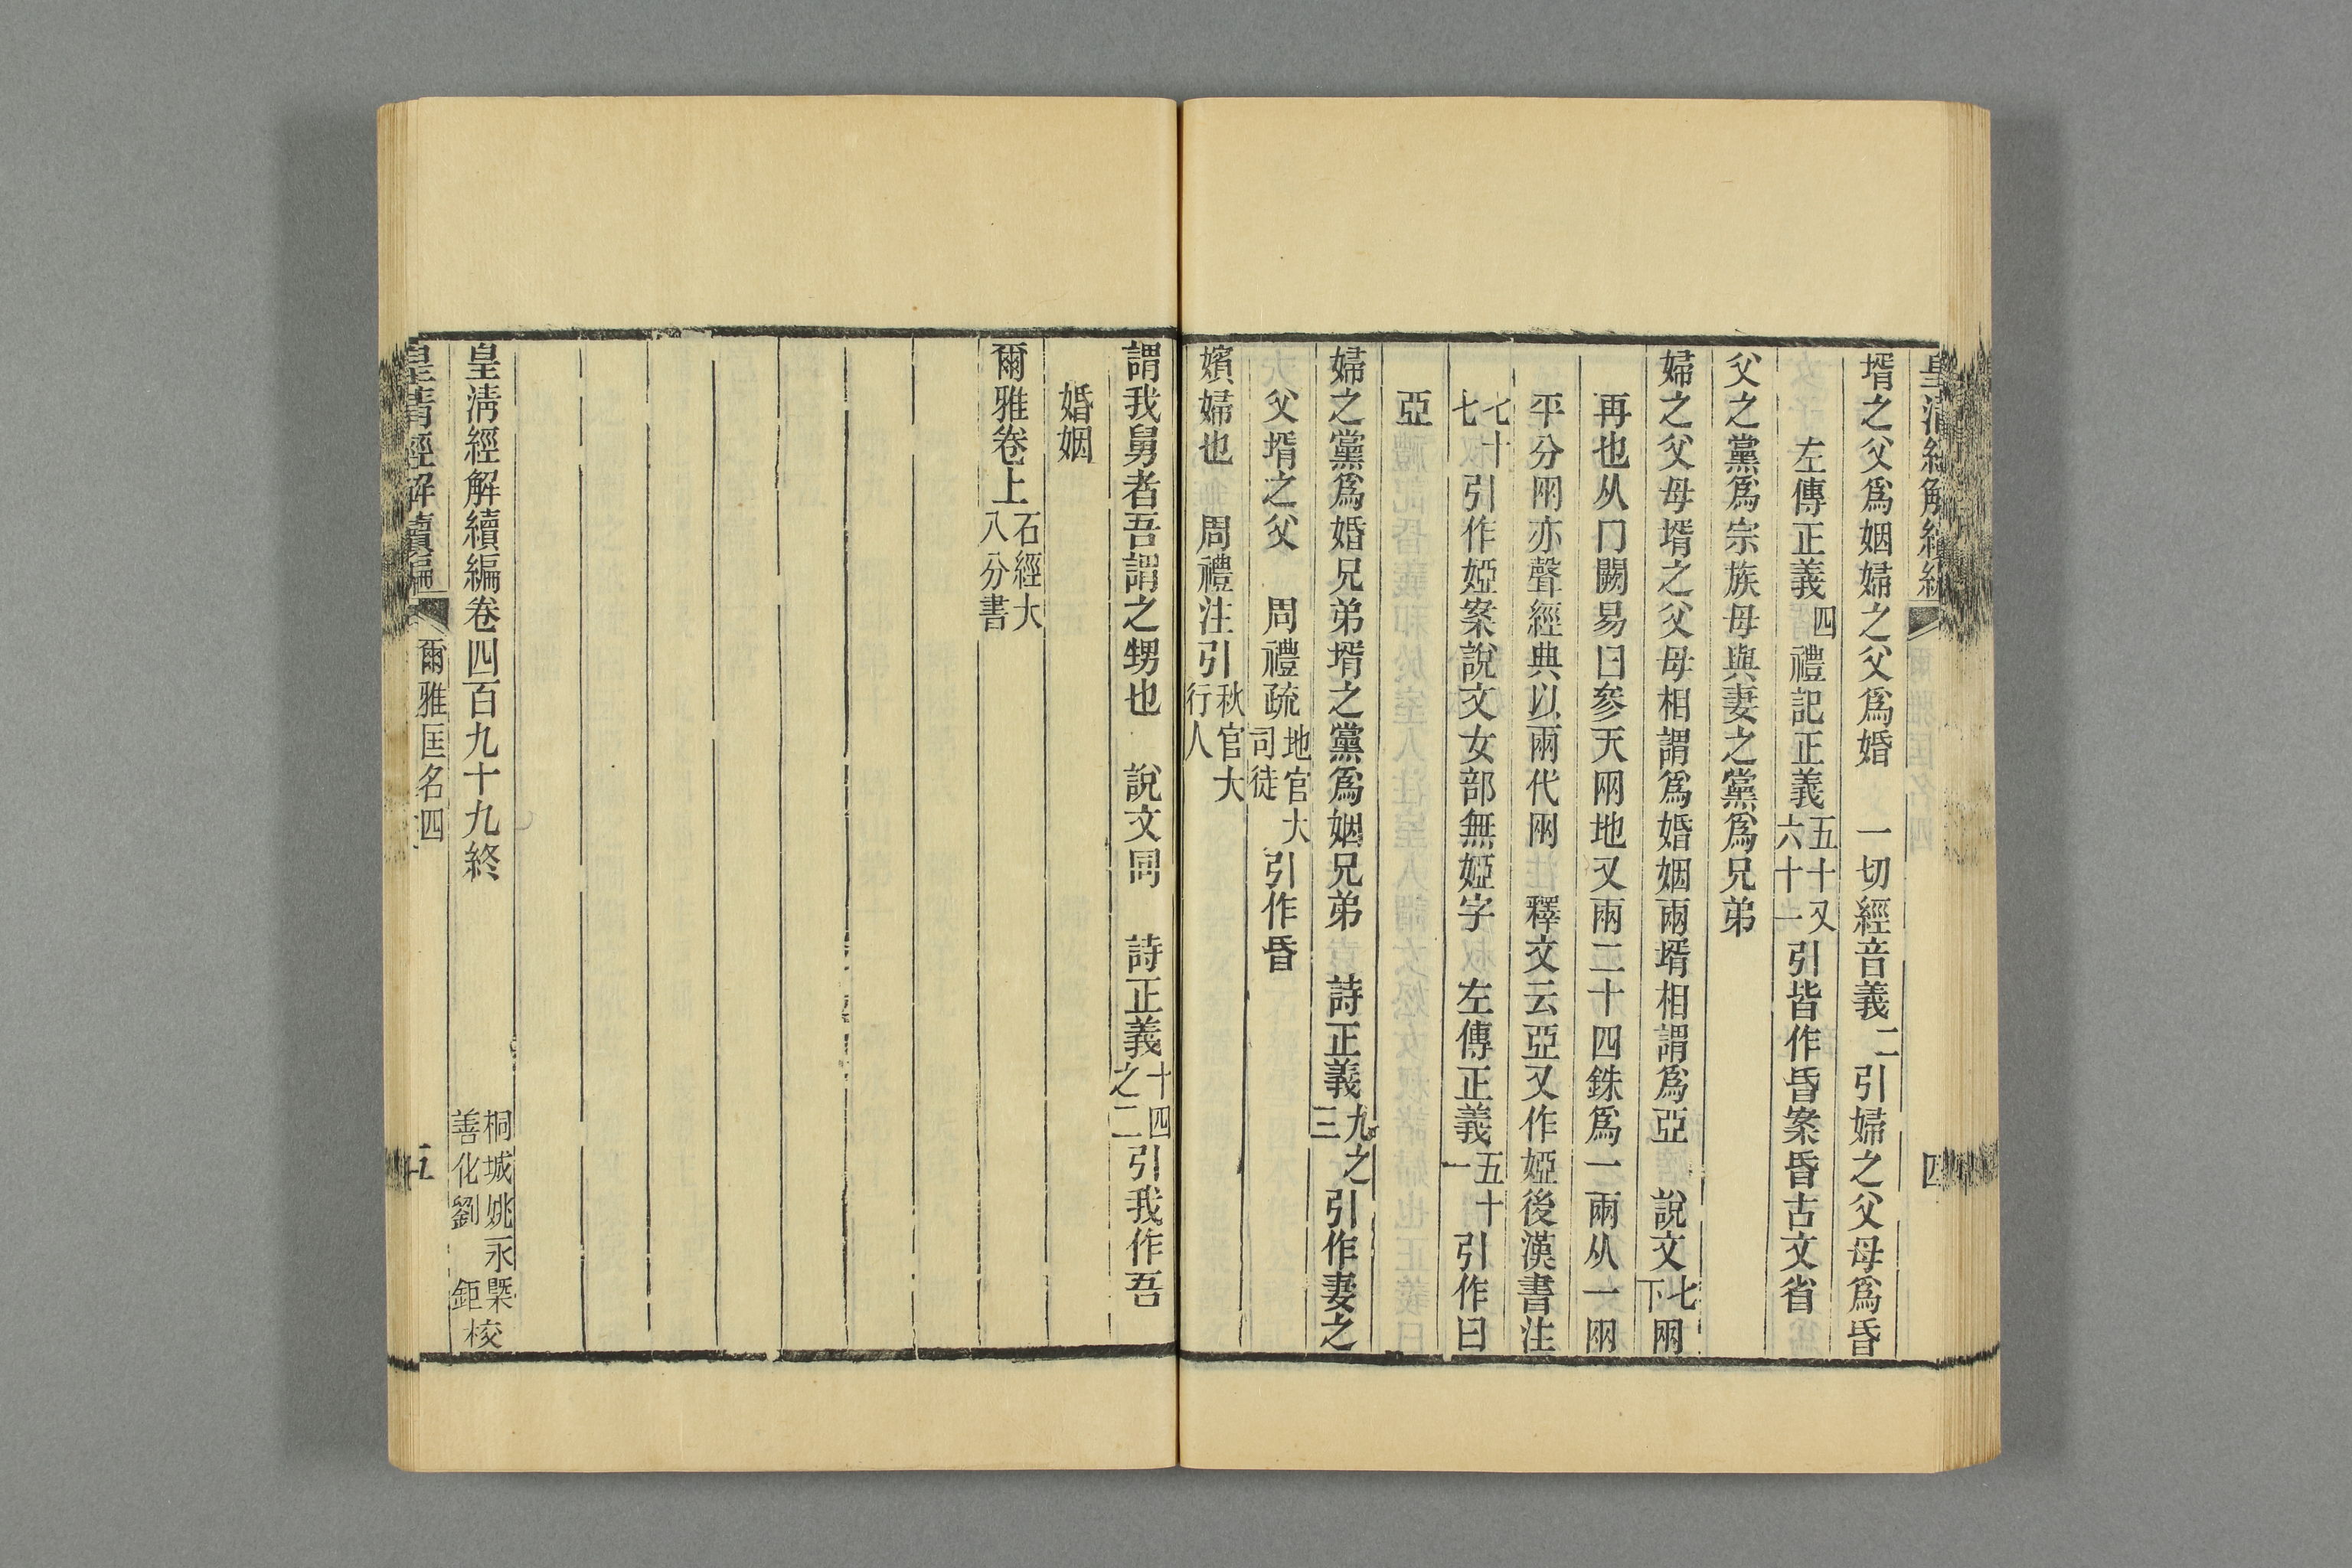 壻之父爲姻婦之父爲婚　一切經音義二引婦之父母爲昏
左傳正義四禮記正義五十又六十一引皆作昏案昏古文省
父之黨爲宗族母與妻之黨爲兄弟
婦之父母壻之父母相謂爲婚姻兩壻相謂爲亞　說文七下㒳
再也从冂闕易曰參天㒳地又兩二十四銖爲一兩从一㒳
平分㒳亦聲經典以兩代㒳　釋文云亞又作婭後漢書注
七十七引作婭案說文女部無婭字　左傳正義五十一引作曰
亞
婦之黨爲婚兄弟壻之黨爲姻兄弟　詩正義九之三引作妻之
父壻之父　周禮疏地官大司徒引作昏
嬪婦也　周禮注引秋官大行人
謂我舅者吾謂之甥也　說文同　詩正義十四之二引我作吾
婚姻
爾雅卷上石經大八分書
皇淸經解續編卷四百九十九終
桐城姚永槩
善化劉　鉅校
皇清經解續編　爾雅匡名四　五